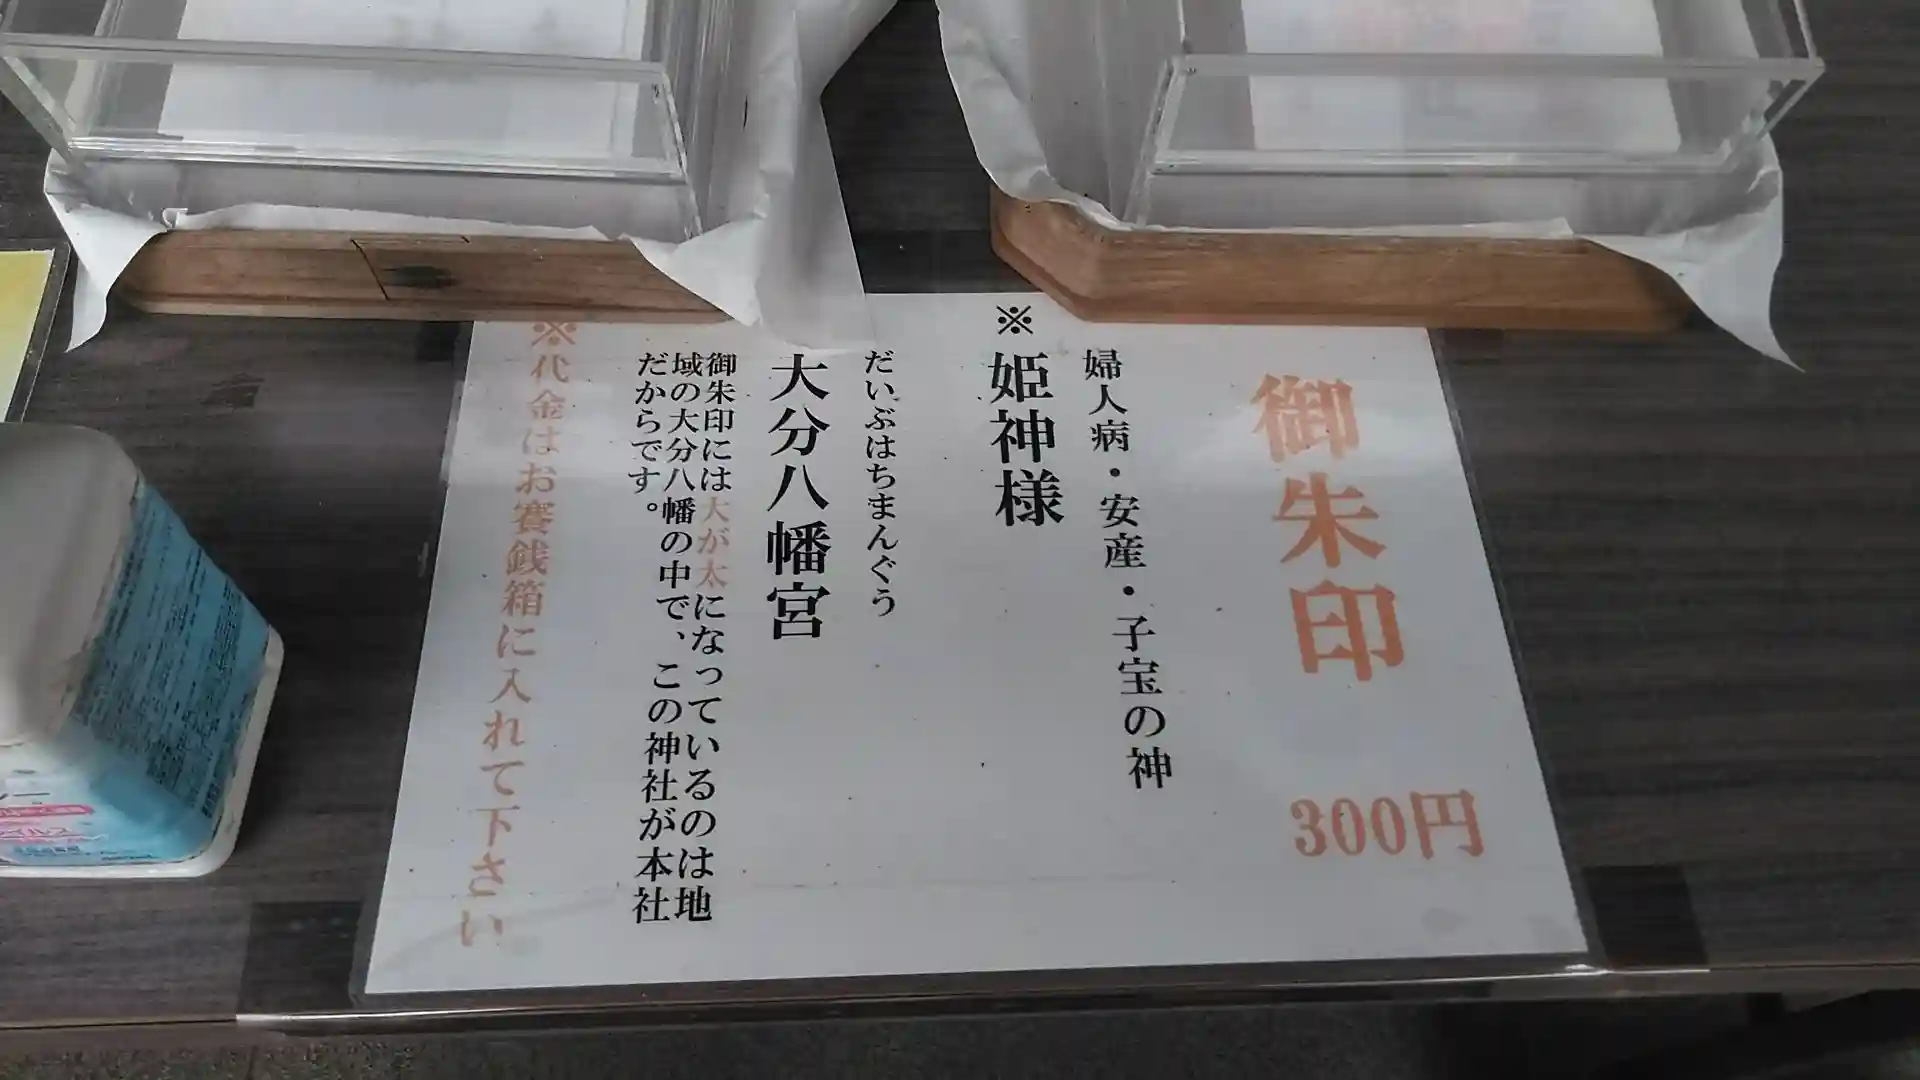 御朱印 300円
婦人病・安産・子宝の神
※姫神様
だいぶはちまんぐう
大分八幡宮
御朱印には大が太になっているのは地
域の大分八幡の中で、この神社が本社
だからです。
※代金はお賽銭箱に入れて下さい